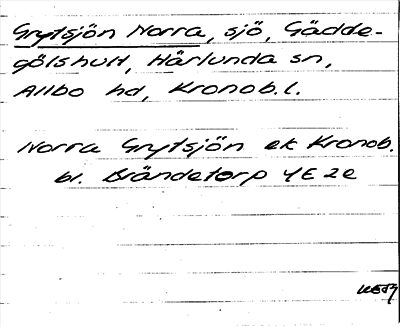 Grytsjön Norra, sjö, Gädde-
gölshult, Härlunda sn,
Allbo hd, Kronob.l.
Norra Grytsjön ek Kronob.
bl. Brändetorp 4E 2e